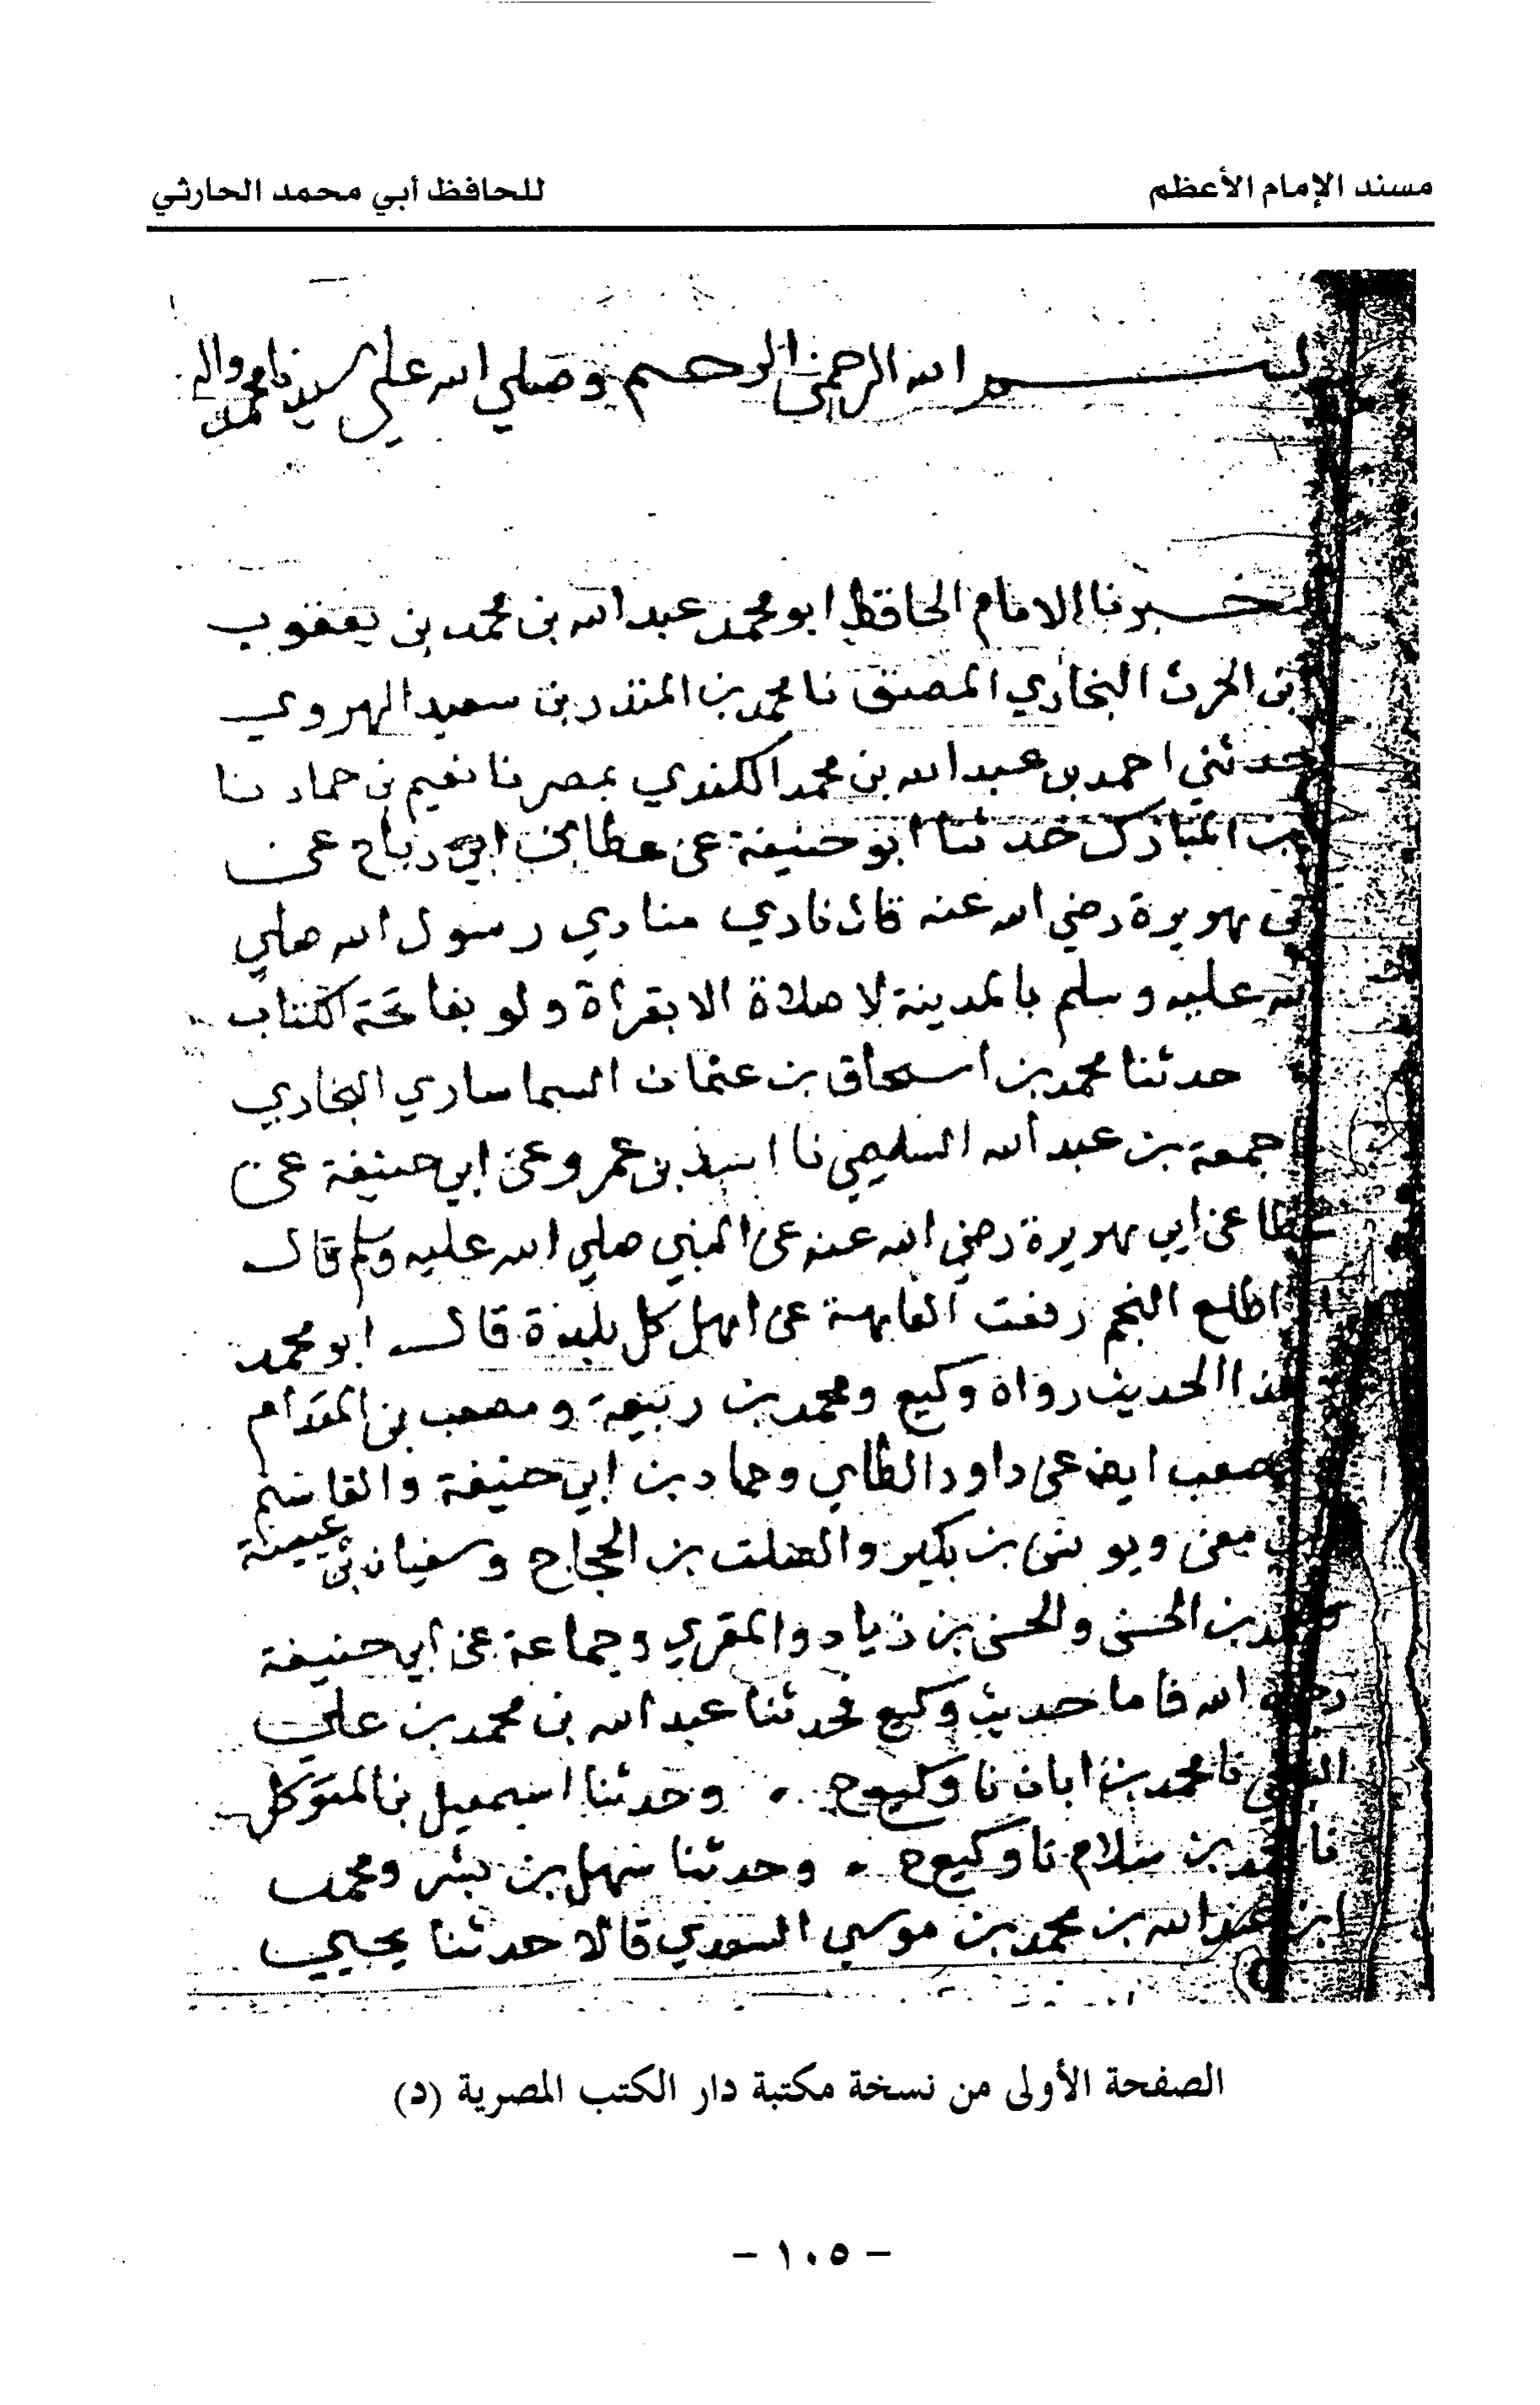 مسند الإمام الأعظم
للحافظ أبي محمد الحارثي
بسم الله الرحمن الرحيم وصلي الله علي سيدنا محمد واله
اخبرنا الامام الحافظ ابو محمد عبد الله بن محمد بن يعقوب
بن الحرث البخاري المصنف نا محمد بن المنذر بن سعيد الهروي
حدثني احمد بن عبد الله بن محمد الكندي بمصر نا نعيم بن حماد نا
بن المبارك حدثنا ابو حنيفة عن عطا بن ابي رباح عن
ابي هريرة رضي الله عنه قال نادي منادي رسول الله صلي
الله عليه وسلم بالمدينة لا صلاة الا بقراة ولو بفاتحة الكتاب
حدثنا محمد بن اسحاق بن عثمان السماساري البخاري
جمعة بن عبد الله السلمي نا اسد بن عمرو عن ابي حنيفة عن
عطا عن ابي هريرة رضي الله عنه عن النبي صلي الله عليه وسلم قال
اطلع النجم رفعت العاهة عن اهل كل بلدة قال ابو محمد
هذا الحديث رواه وكيع ومحمد بن ربيعة ومصعب بن المقدام
مصعب ايض عن داود الطاي وحماد بن ابي حنيفة والقاسم
بن معن ويونس بن بكير والصلت بن الحجاج وسفيان بن عيينة
ومحمد بن الحسن والحسن بن زياد والمقري وجماعة عن ابي حنيفة
رحمه الله فاما حديث وكيع فحدثنا عبد الله بن محمد بن علي
نا محمد بن ابان نا وكيع ح وحدثنا اسمعيل بن المتوكل
نا محمد بن سلام نا وكيع ح وحدثنا سهل بن بشر ومحمد
ابن عبد الله بن محمد بن موسي السعدي قالا حدثنا يحيي
الصفحة الأولى من نسخة مكتبة دار الكتب المصرية (د)
- ١٠٥ -